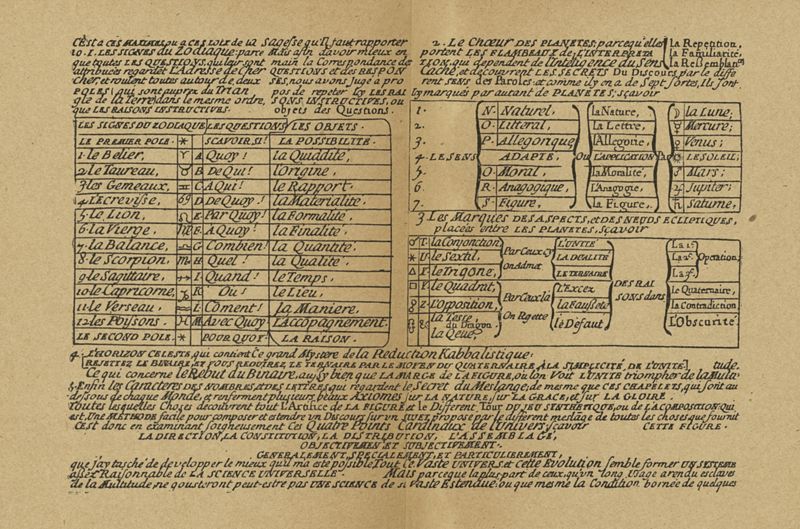 C'Est a ces MAXIMES, ou a ces LOIX de la Sagesse qu'Il faut rapporter
10. 1. LES SIGNES du Zodiaque: parce
que toutes LES QUESTIONS, qui leur sont
attribuées regardent L'Adresse de Cher
cher, et roulent toutes autour de deux
POLES: qui sont aupres du Trian
gle de la Terre: dans le mesme ordre,
que LES RAISONS INSTRUCTIVES.
Mais afin d'avoir mieux en
main la Correspondance de
QUESTIONS et des RESPON
SES, nous avons jugé a pro
pos de repeter Icy LES RAI
SONS INSTRUCTIVES, ou
objets des Questions.
LES SIGNES DU ZODIAQUE, LES QUESTIONS, LES OBJETS.
LE PREMIER POLE * SCAVOIR.SI! LA POSSIBILITE.
1. le Belier, ♈ A Quoy! la Quiddité,
2. le Taureau, ♉ B De Qui! l'Origine,
3. les Gemeaux, ♊ C A Qui! le Rapport,
4. L'Ecrevise, ♋ D De Quoy! la Materialité,
5. le Lion, ♌ E Par Quoy! la Formalité,
6. la Vierge, ♍ F A Quoy! la Finalité,
7. la Balance, ♎ G Combien! la Quantité,
8. le Scorpion, ♏ H Quel! la Qualité,
9. le Sagittaire, ♐ I Quand! le Temps,
10. le Capricorne, ♑ K Où! le Lieu,
11. le Verseau, ♒ L Coment! La Maniere,
12. les Poissons. ♓ M Avec Quoy! L'Accopagnement.
LE SECOND POLE * POUR QUOY! LA RAISON.
2. Le Chœur DES PLANETES; parce qu'elles
portent LES FLAMBEAUX de L'INTERPRETA
TION, qui dependent de l'Intelligence du SENS
Caché, et decouvrent LES SECRETS Du Discours par le diffe
rent SENS des Paroles: et comme il y en a de Sept sortes, Ils sont
Icy marqués par autant de PLANETES, sçavoir
la Repetition,
la Familiarité,
la Ressemblance
1. N. Naturel, la Nature, ☽ la Lune;
2. O. Litteral, la Lettre, ☿ Mercure;
3. P. Allegorique l'Allegoire, ♀ Venus;
4. LE SENS ADAPTE, Ou L'APPLICATION Par ☉ LE SOLEIL;
5. O. Moral, la Moralité, ♂ Mars;
6. R. Anagogique, L'Anagogie, ♃ Jupiter;
7. S. Figure, la Figure, ♄ Saturne,
3. Les Marques DES ASPECTS, et DES NEUDS ECLIPTIQUES,
placées entre LES PLANETES, sçavoir
☌ T. la Conjonction L'UNITÉ La 1e.
⚹ U. le Sextil, Par Ceux cy LA DUALITÉ La 2e. Operation;
△ le Trigone, On Admet LE TERNAIRE La 3e.
□ le Quadrat, L'Excez DES RAI le Quaternaire,
☍ l'Oposition, Par Ceux là la Fausseté SONS dans la Contradiction
☊ la Teste, On Rejette le Défaut, L'Obscurité.
du Dragon,
☋ la Qeue,
4. L'HORIZON CELESTE, qui contient Ce grand Mystere de la Reduction Kabbalistique:
REJETTEZ LE BINAIRE, ET VOUS REDUIREZ LE TERNAIRE PAR LE MOYEN DU QUATERNAIRE A LA SIMPLICITÉ DE L'UNITÉ, tude.
Ce qui concerne le Rebut du Binaire, aussy bien que LA MARGE DE LA FIGURE, ou l'on Voit L'UNITÉ triompher de la Multi
5. Enfin les Caracteres DES NOMBRES, ET DES LETTRES, qui regardent le Secret du Meslange; de mesme que CES CHAPELETS, qui sont au
dessous de chaque Monde, et renferment plusieurs beaux Axiomes sur LA NATURE, sur LA GRACE, et sur LA GLOIRE.
Toutes lesquelles Choses decouvrent tout l'Artifice de LA FIGURE et le Different Tour DU JEU SYNTHETIQUE, ou de LA COMPOSITION, qui
est Une METHODE facile pour composer et etendre un Discours sur un SUJET proposé par le different meslange de toutes les choses que fournit
C'est donc en examinant soigneusement Ces Quatre Points Cardinaux de l'Univers, sçavoir CETTE FIGURE.
LA DIRECTION, LA CONSTITUTION, LA DISTRIBUTION, L'ASSEMBLAGE,
OBJECTIVEMENT ET SUBJECTIVEMENT.
GENERALEMENT, SPECIALEMENT, ET PARTICULIEREMENT,
que j'ay taché de developper le mieux qu'il m'a esté possible Tout Ce Vaste UNIVERS: et Cette Evolution semble former UN SISTEME
assez Raisonnable de LA SCIENCE UNIVERSELLE. Mais parce que la plus part de ceux qu'un long Usage a rendu esclaves
de la Multitude, ne gousteront peut-estre pas UNE SCIENCE de si Vaste Estendue: ou que mesme la Condition bornée de quelques